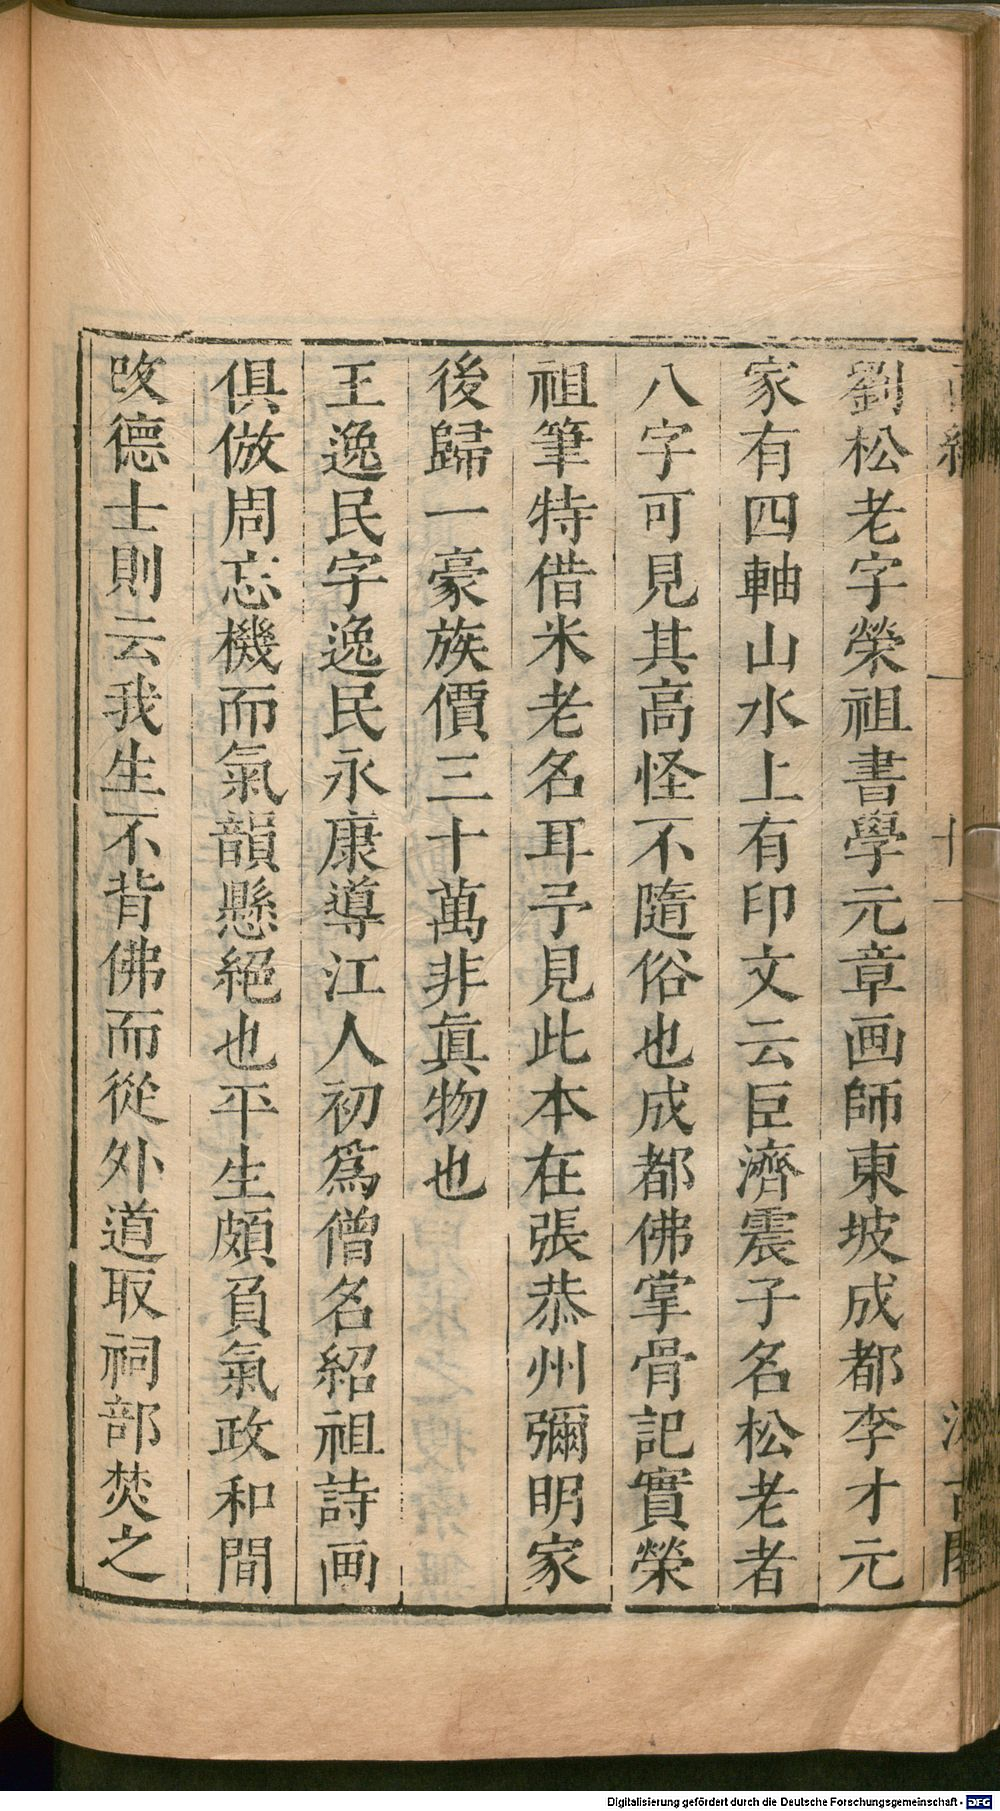 劉松老字榮祖書學元章画師東坡成都李才元
家有四軸山水上有印文云臣濟震子名松老者
八字可見其高怪不隨俗也成都佛掌骨記實榮
祖筆特借米老名耳予見此本在張恭州彌明家
後歸一豪族價三十萬非眞物也
王逸民字逸民永康導江人初爲僧名紹祖詩画
俱倣周忘機而氣韻懸絕也平生頗負氣政和間
改德士則云我生不背佛而從外道取祠部焚之
Digitalisierung gefördert durch die Deutsche Forschungsgemeinschaft - DFG